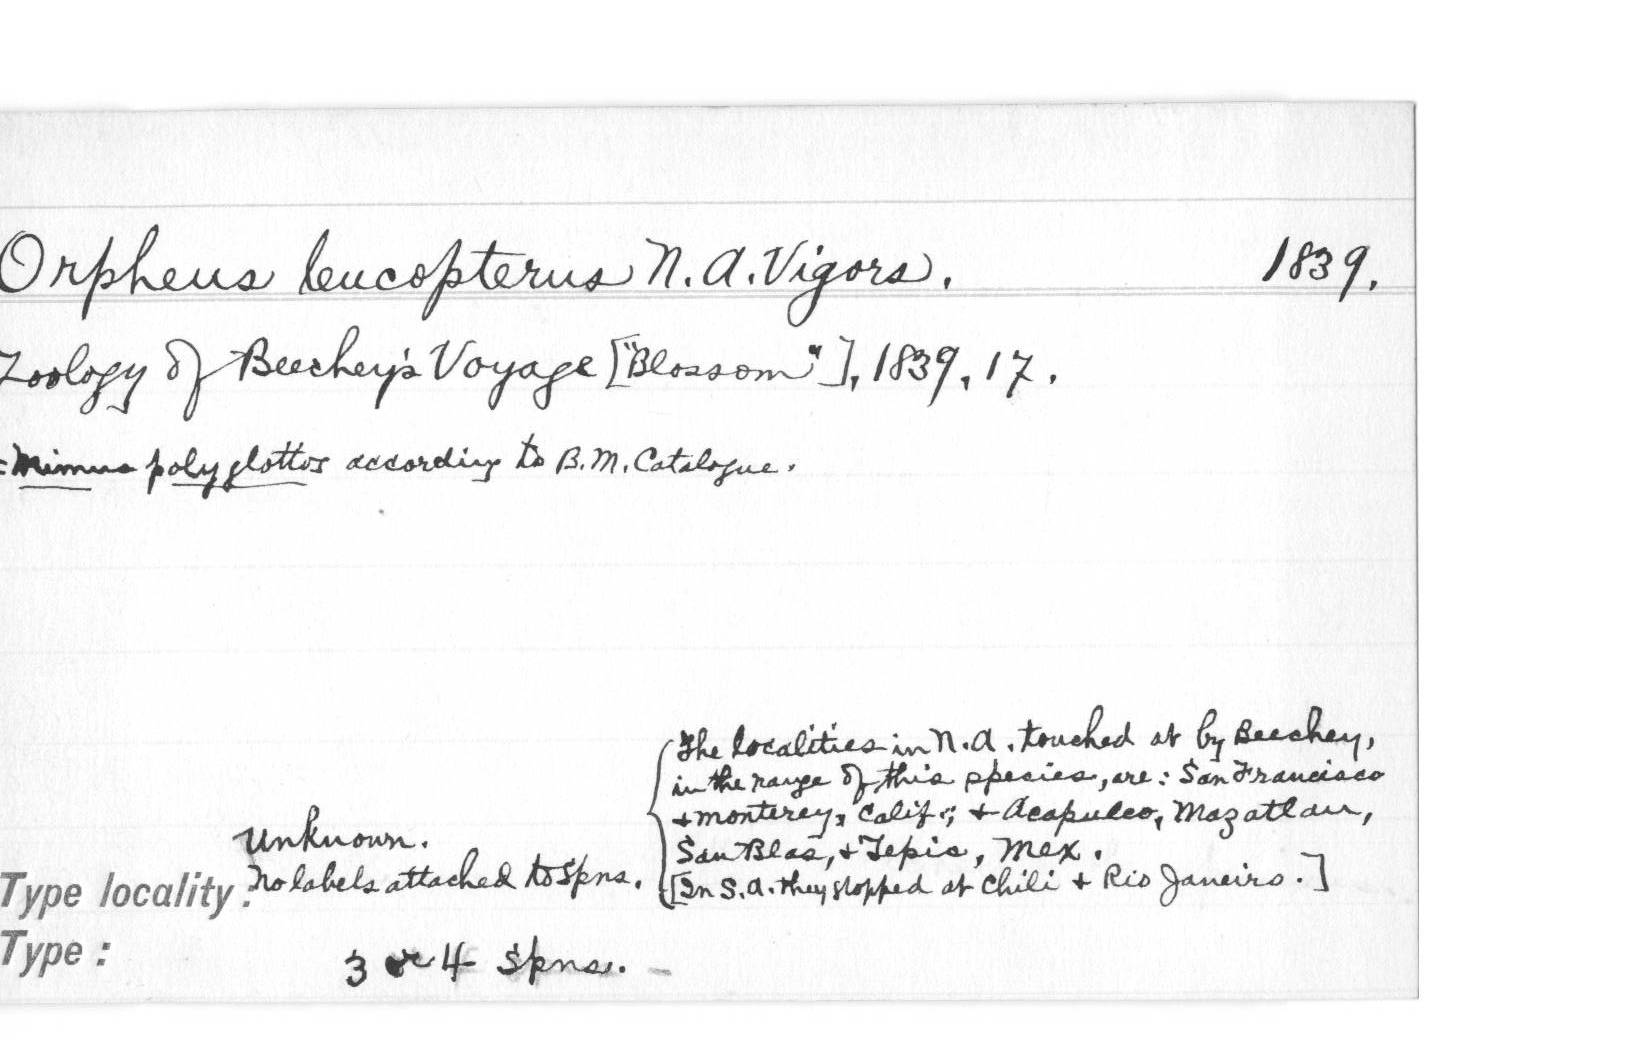 Orpheus leucopterus N.A. Vigors. 1839.
Zoology of Beechey's Voyage ["Blossom"], 1839, 17.
= Mimus polyglottos according to B.M. Catalogue.
The localities in N.A. touched at by Beechey,
in the range of this species, are: San Francisco
+ Monterey, Calif.; + Acapulco, Mazatlan,
San Blas, + Tepic, Mex.
[In S.A. they stopped at Chili + Rio Janeiro.]
Unknown.
Type locality: No labels attached to spns.
Type: 3 or 4 spns. –